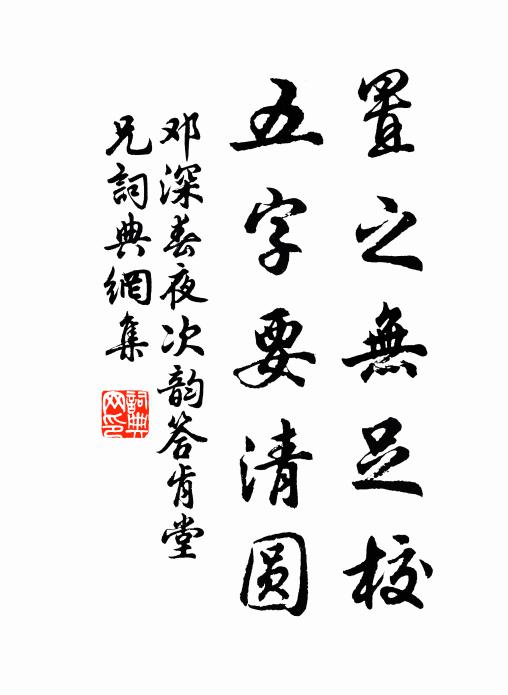 置之無足校
五字要清圆
邓深春夜次韵答肯堂
兄詞典網集
詞典
网印